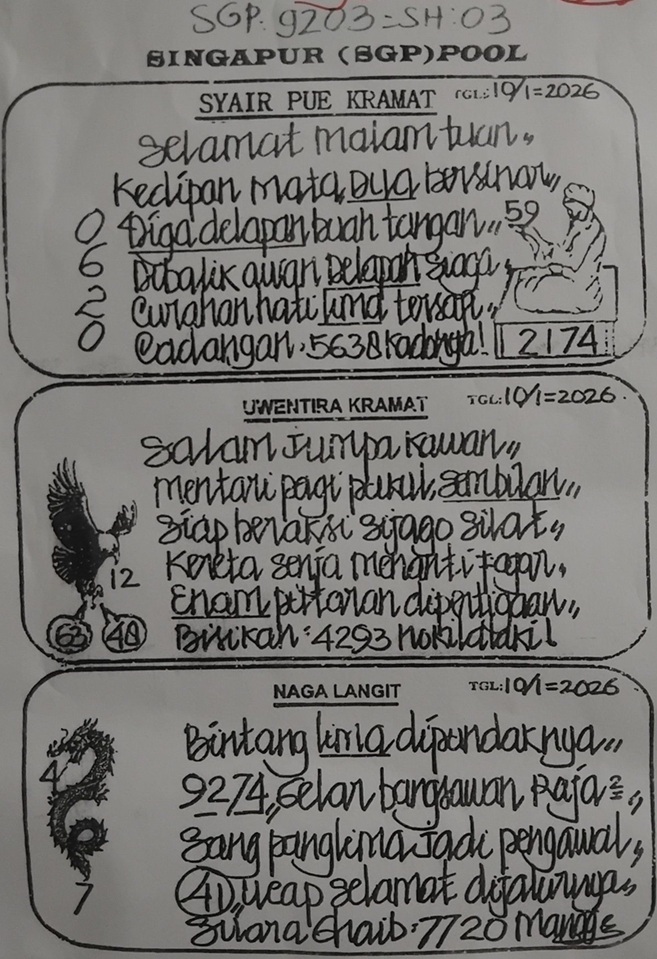 SGP: 9203=SH:03
SINGAPUR (SGP)POOL
SYAIR PUE KRAMAT TGL:10/1=2026
Selamat malam tuan,,
Kedipan mata Dua bersinar,,
0 Diga delapan buah tangan,, 59
6 Dibalik awan Delapan siaga,
2 Curahan hati lima tersaji,,
0 Cadangan. 5638 Kadonya! 2174
UWENTIRA KRAMAT TGL:10/1=2026.
Salam Jumpa Kawan,,
mentari pagi pukul, sembilan,,
Siap beraksi sijago silat,,
Kereta senja menanti fajar,
12
Enam putaran dipertigaan,,
63 40 Bisikan:4293 hoki!
NAGA LANGIT TGL:10/1=2026
Bintang lima dipundaknya,,
4 9274,, Gelar bangsawan Raja²,,
Sang panglima Jadi pengawal,,
7 41, Ucap selamat dijalurnya,,
Suara Ghaib:7720